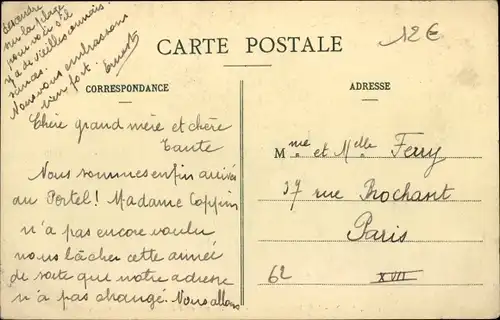 CARTE POSTALE
12€
CORRESPONDANCE
ADRESSE
Chère grand mère et chère
tante
Nous sommes enfin arrivés
au Portel! Madame Coppin
n'a pas encore voulu
nous lâcher cette année
de sorte que notre adresse
n'a pas changé. Nous allons
descendre
sur la plage
pour voir s'il
y a de vieilles connais
sances.
Nous vous embrassons
bien fort.
Ernest
Mme et Melle Ferry
37 rue Rochant
Paris
62
XVII